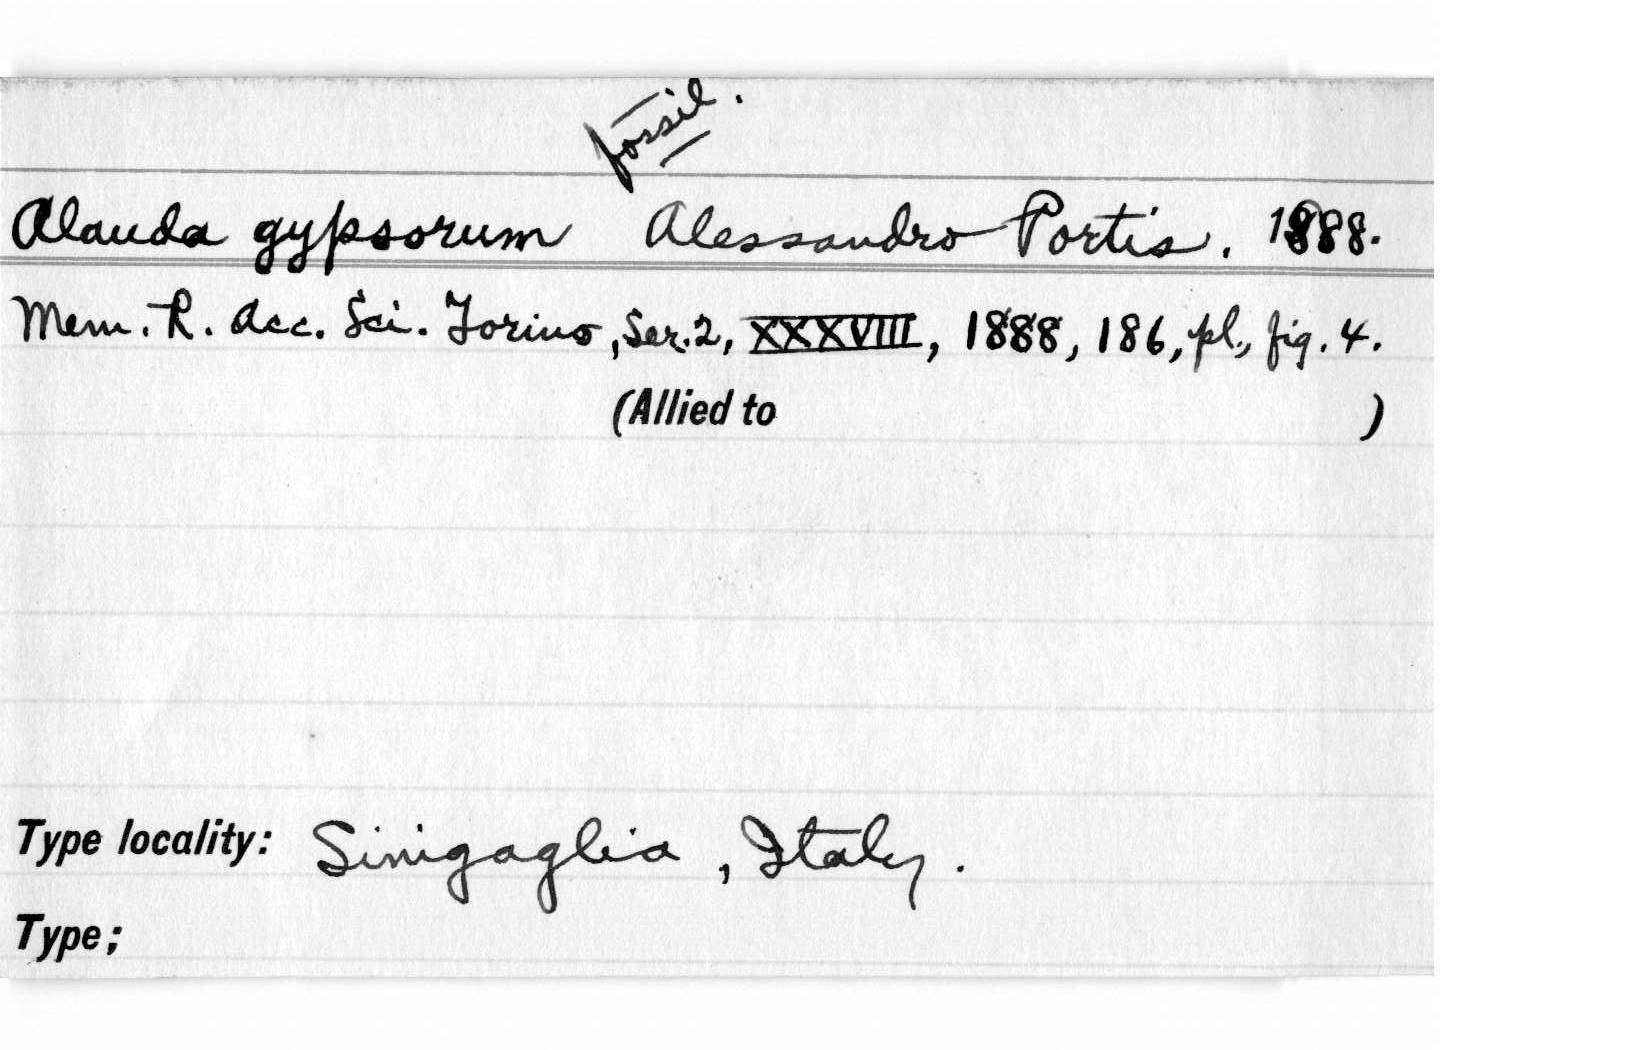 fossil.
Alauda gypsorum Alessandro Portis, 1888.
Mem. R. Acc. Sci. Torino, Ser. 2, XXXVIII, 1888, 186, pl., fig. 4.
(Allied to )
Type locality: Sinigaglia, Italy.
Type;